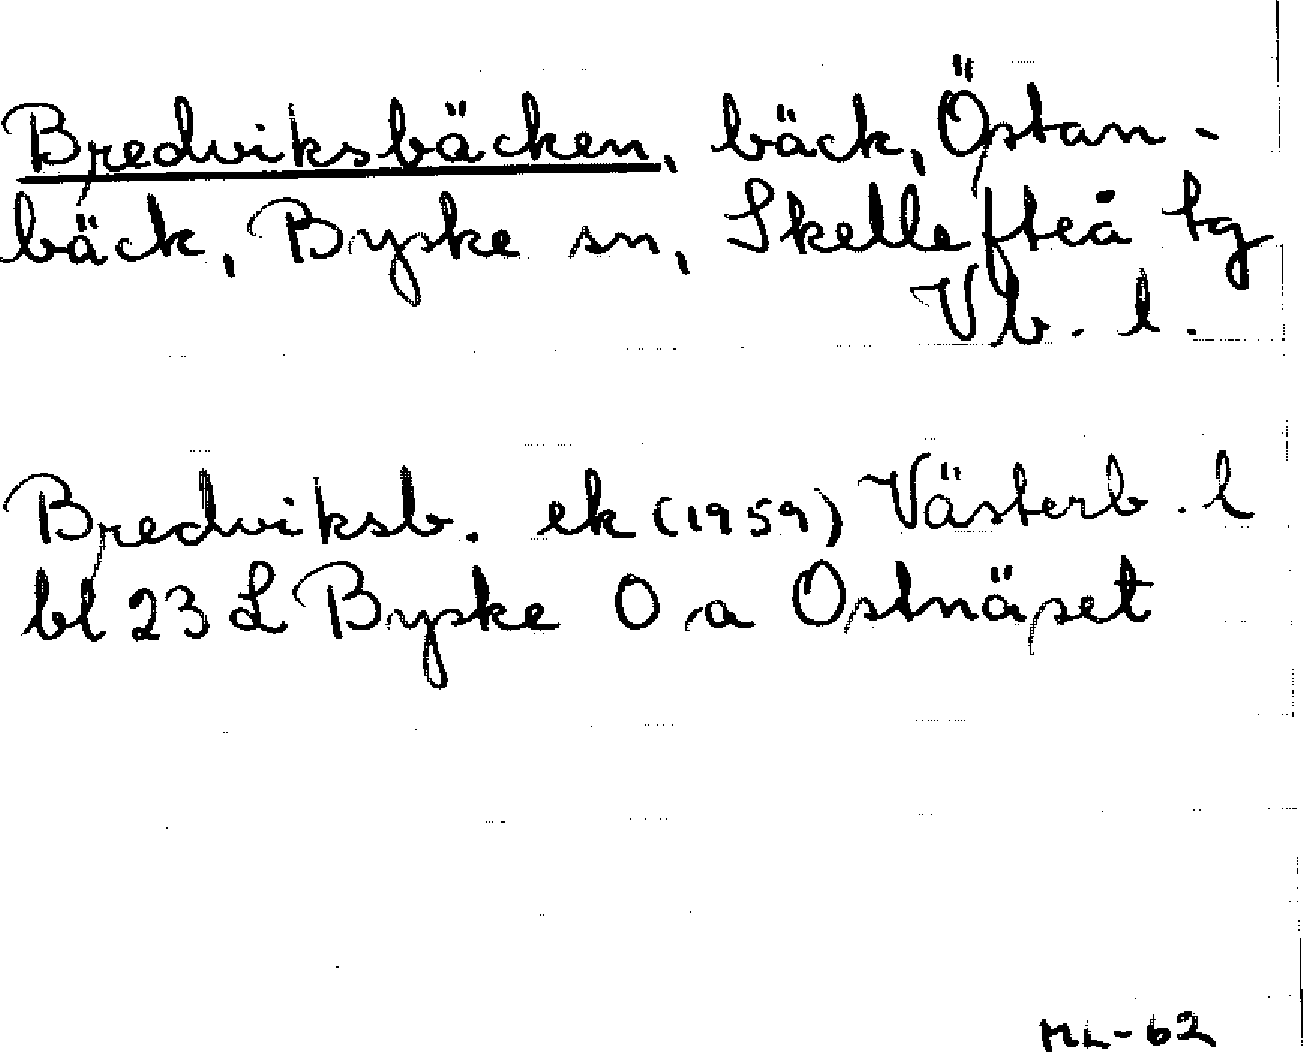 Bredviksbäcken, bäck, Östan-
bäck, Byske sn, Skellefteå tg
Vb. l.
Bredviksb. ek (1959) Västerb. l
bl 23 L Byske O, a Ostnäset
ML-62